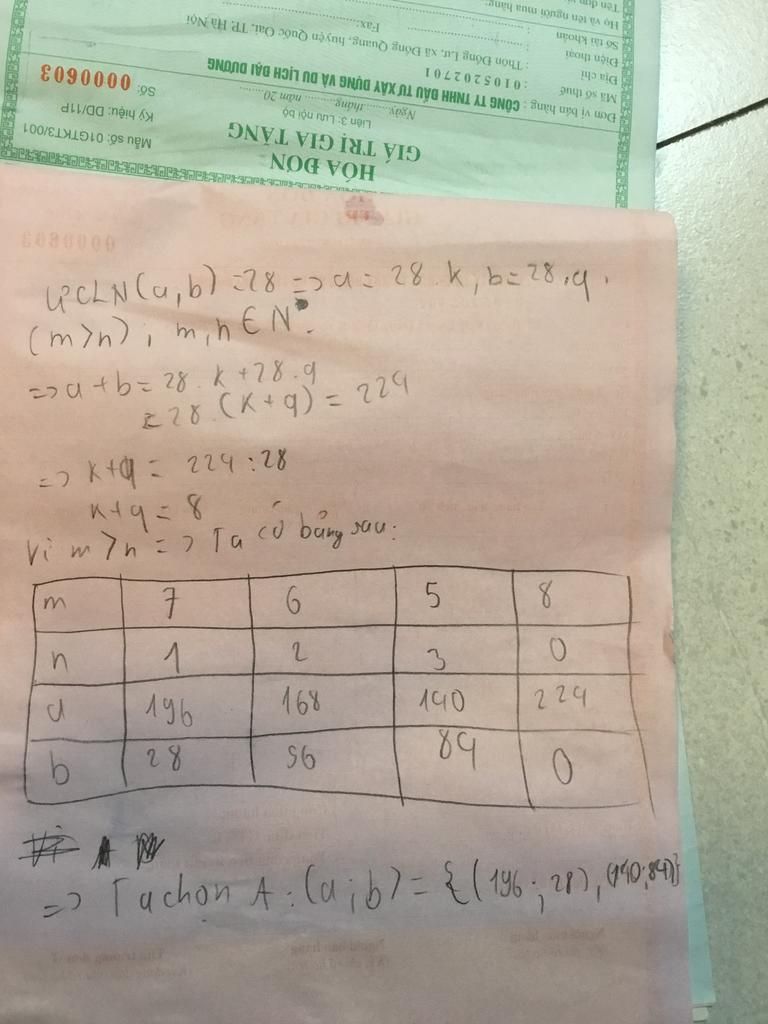 Tên đơn vị
Họ và tên người mua hàng:
Số tài khoản
Điện thoại : Fax:
Địa chỉ : Thôn Đồng Lư, xã Đồng Quang, huyện Quốc Oai, TP. Hà Nội
Mã số thuế : 0105202701
Đơn vị bán hàng : CÔNG TY TNHH ĐẦU TƯ XÂY DỰNG VÀ DU LỊCH ĐẠI DƯƠNG
Ngày.......tháng.......năm 20
Liên 3: Lưu nội bộ
Số: 0000603
Ký hiệu: DD/11P
GIÁ TRỊ GIA TĂNG
HÓA ĐƠN
Mẫu số: 01GTKT3/001
ƯCLN(a,b) = 28 => a = 28.k, b = 28.q.
(m>n); m,n ∈ N*.
=> a + b = 28. k + 28.q
= 28.(k+q) = 224
=> k+q = 224 : 28
k+q = 8
Vì m>n => Ta có bảng sau:
m 7 6 5 8
n 1 2 3 0
a 196 168 140 224
b 28 56 84 0
=> Ta chọn A: (a;b) = {(196;28),(140;84)}